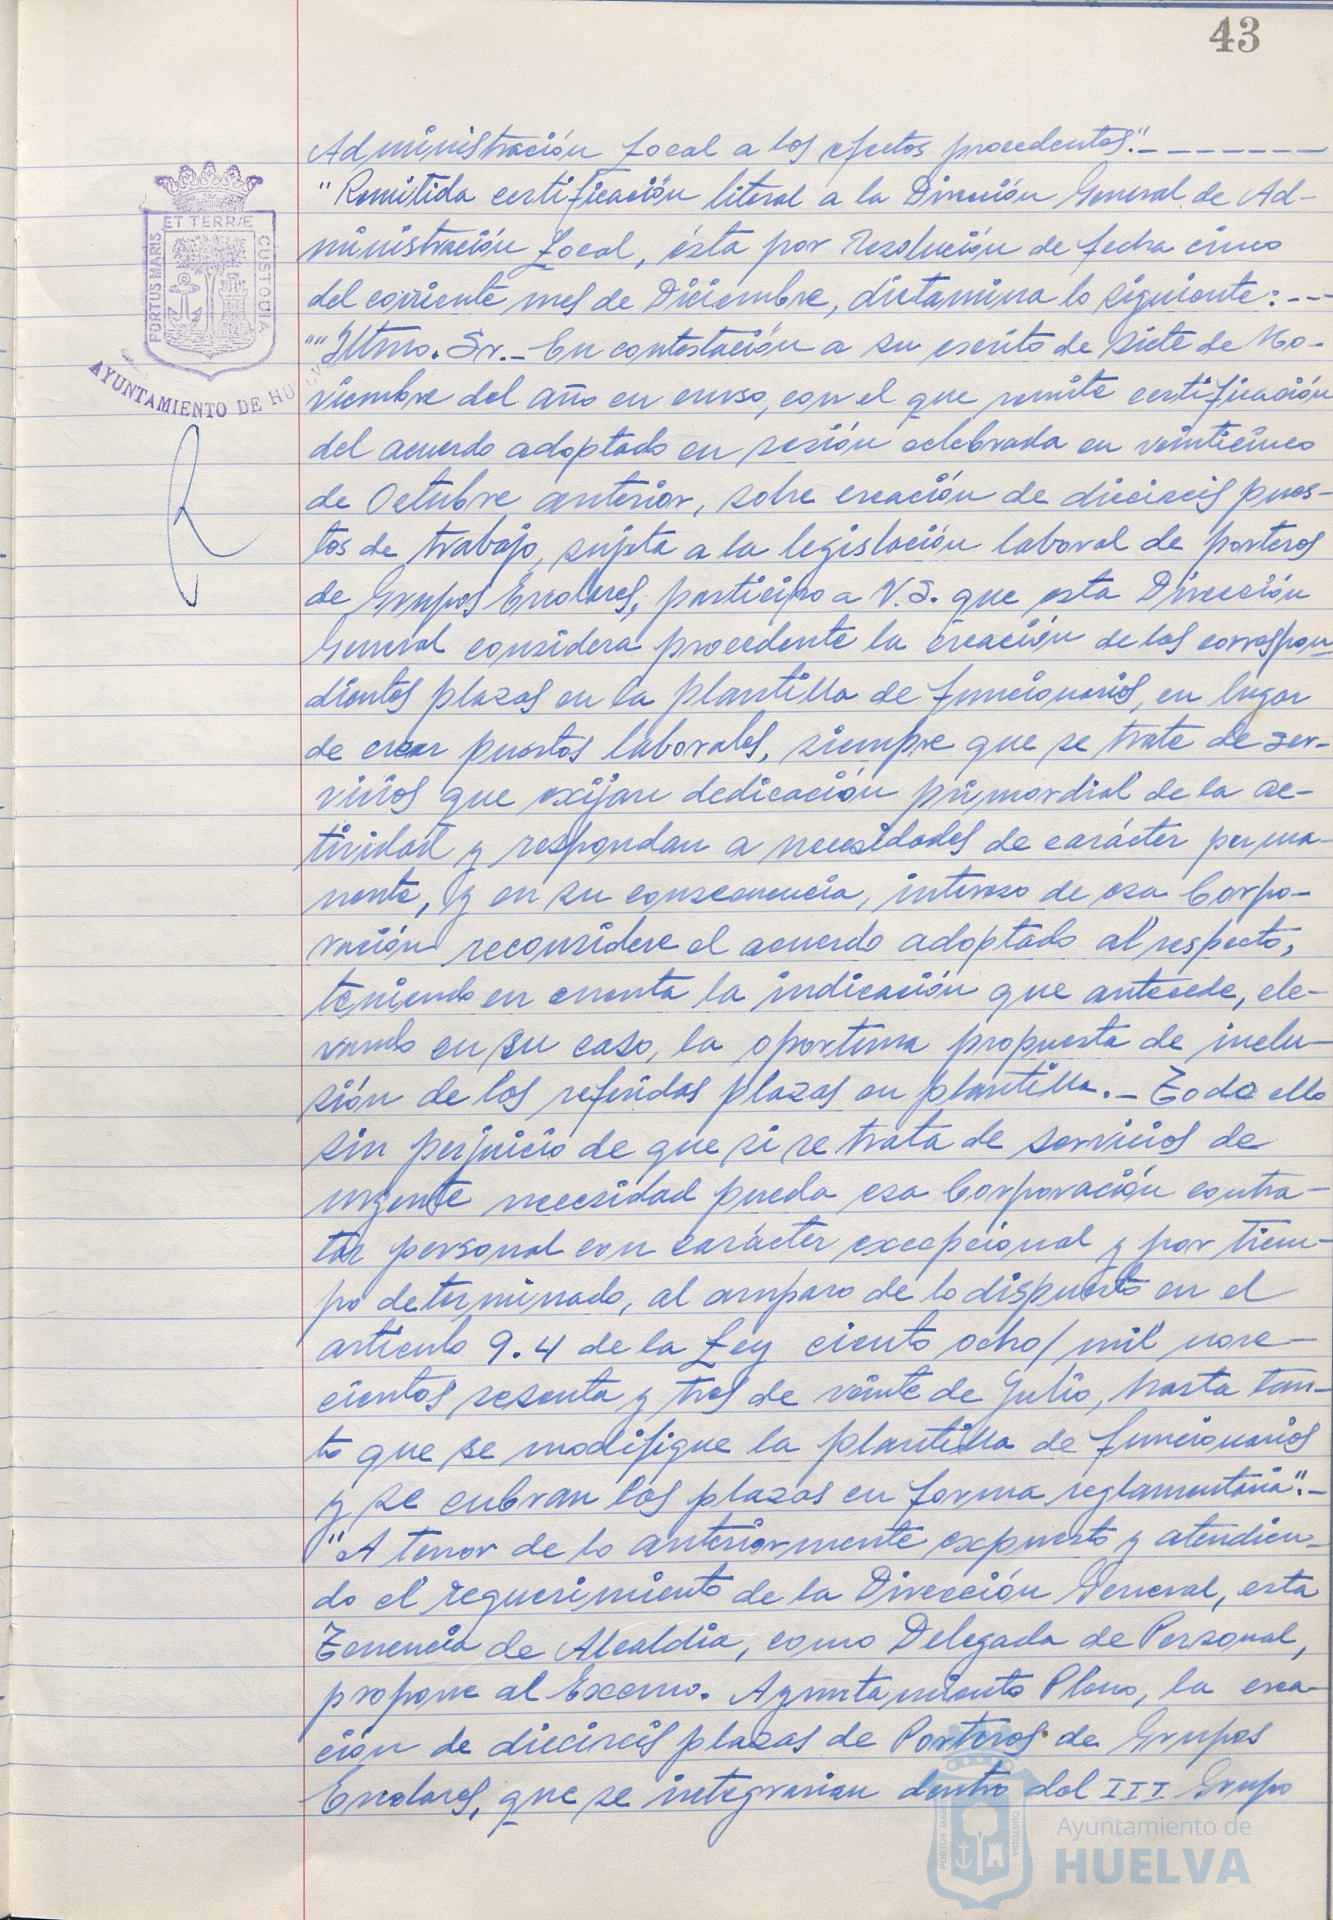 43
Administración Local a los efectos procedentes".- - - - - - - -
"Remitida certificación literal a la Dirección General de Ad-
ministración Local, ésta por Resolución de fecha cinco
del corriente mes de Diciembre, dictamina lo siguiente: - -
""Iltmo. Sr. - En contestación a su escrito de siete de No-
viembre del año en curso, con el que remite certificación
del acuerdo adoptado en sesión celebrada en veinticinco
de Octubre anterior, sobre creación de dieciseis pues-
tos de trabajo, sujeta a la legislación laboral de porteros
de Grupos Escolares, participo a V.S. que esta Dirección
General considera procedente la creación de las correspon-
dientes plazas en la plantilla de funcionarios, en lugar
de crear puestos laborales, siempre que se trate de ser-
vicios que exijan dedicación primordial de la ac-
tividad y respondan a necesidades de carácter perma-
nente, y en su consecuencia, intereso de esa Corpo-
ración reconsidere el acuerdo adoptado al respecto,
teniendo en cuenta la indicación que antecede, ele-
vando en su caso, la oportuna propuesta de inclu-
sión de las referidas plazas en plantilla. - Todo ello
sin perjuicio de que si se trata de servicios de
urgente necesidad pueda esa Corporación contra-
tar personal con carácter excepcional y por tiem-
po determinado, al amparo de lo dispuesto en el
artículo 9.4 de la Ley ciento ocho/ mil nove-
cientos sesenta y tres de veinte de Julio, hasta tan-
to que se modifique la plantilla de funcionarios
y se cubran las plazas en forma reglamentaria". -
"A tenor de lo anteriormente expuesto y atendien-
do el requerimiento de la Dirección General, esta
Tenencia de Alcaldía, como Delegada de Personal,
propone al Excmo. Ayuntamiento Pleno, la crea-
ción de dieciseis plazas de Porteros de Grupos
Escolares, que se integrarían dentro del III Grupo
PORTUS MARIS ET TERRÆ CUSTODIA
AYUNTAMIENTO DE HUELVA
PORTUS MARIS CUSTODIA
Ayuntamiento de
HUELVA